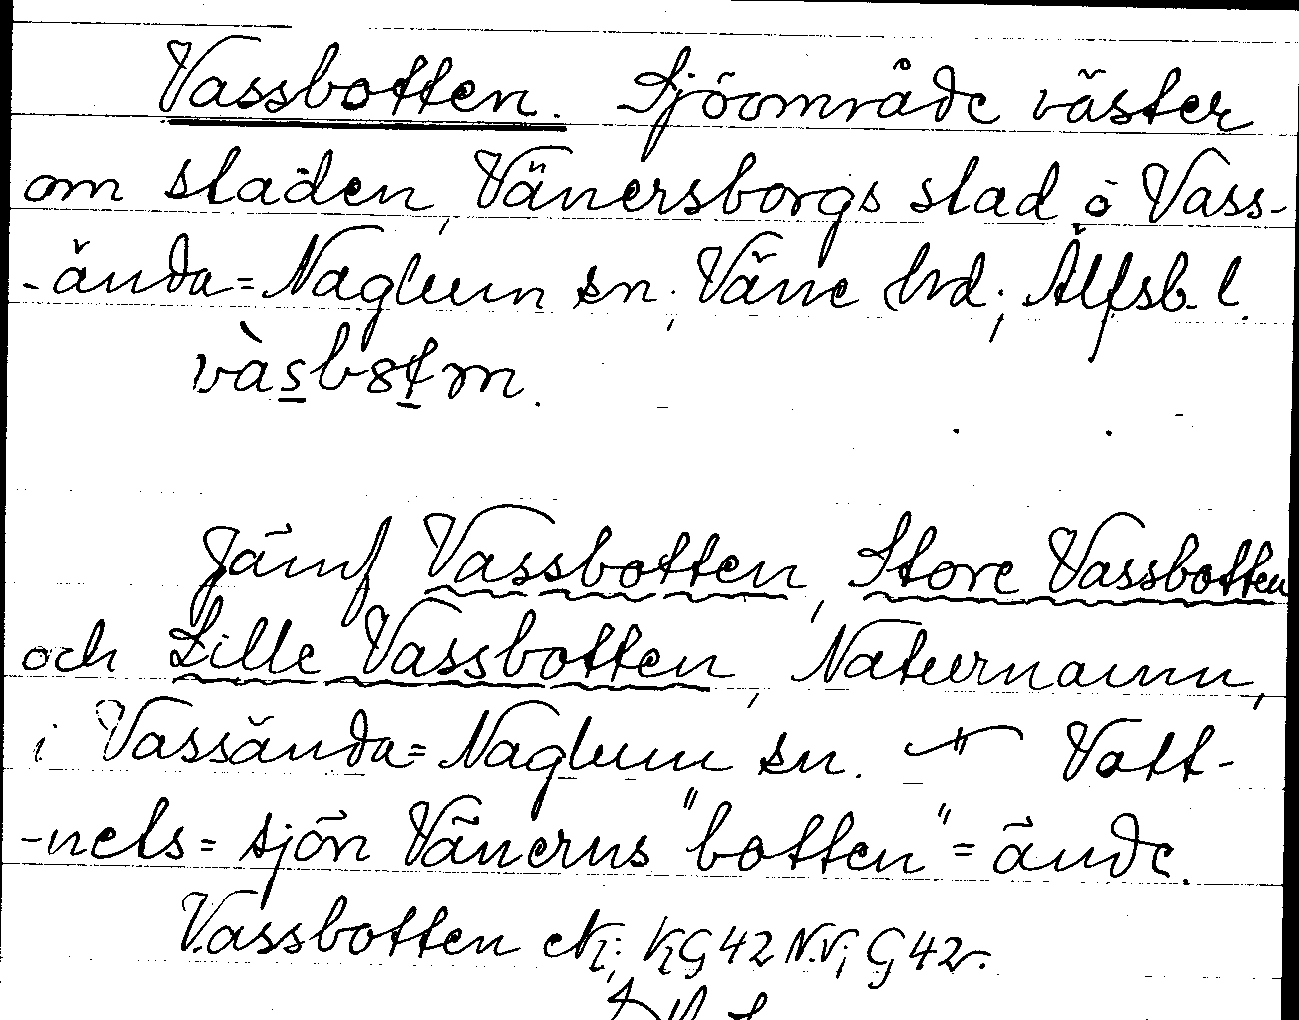 Vassbotten. Sjöområde väster
om staden, Vänersborgs stad o Vass-
-ända=Naglum sn; Väne hrd; Älfsb. l.
vàsbotm.
Jämf Vassbotten, Store Vassbotten
och Lille Vassbotten, Naturnamn,
i Vassända=Naglum sn. Vatt-
-nets= sjön Vänerns "botten"= ände.
Vassbotten KG42 N.V; G42.